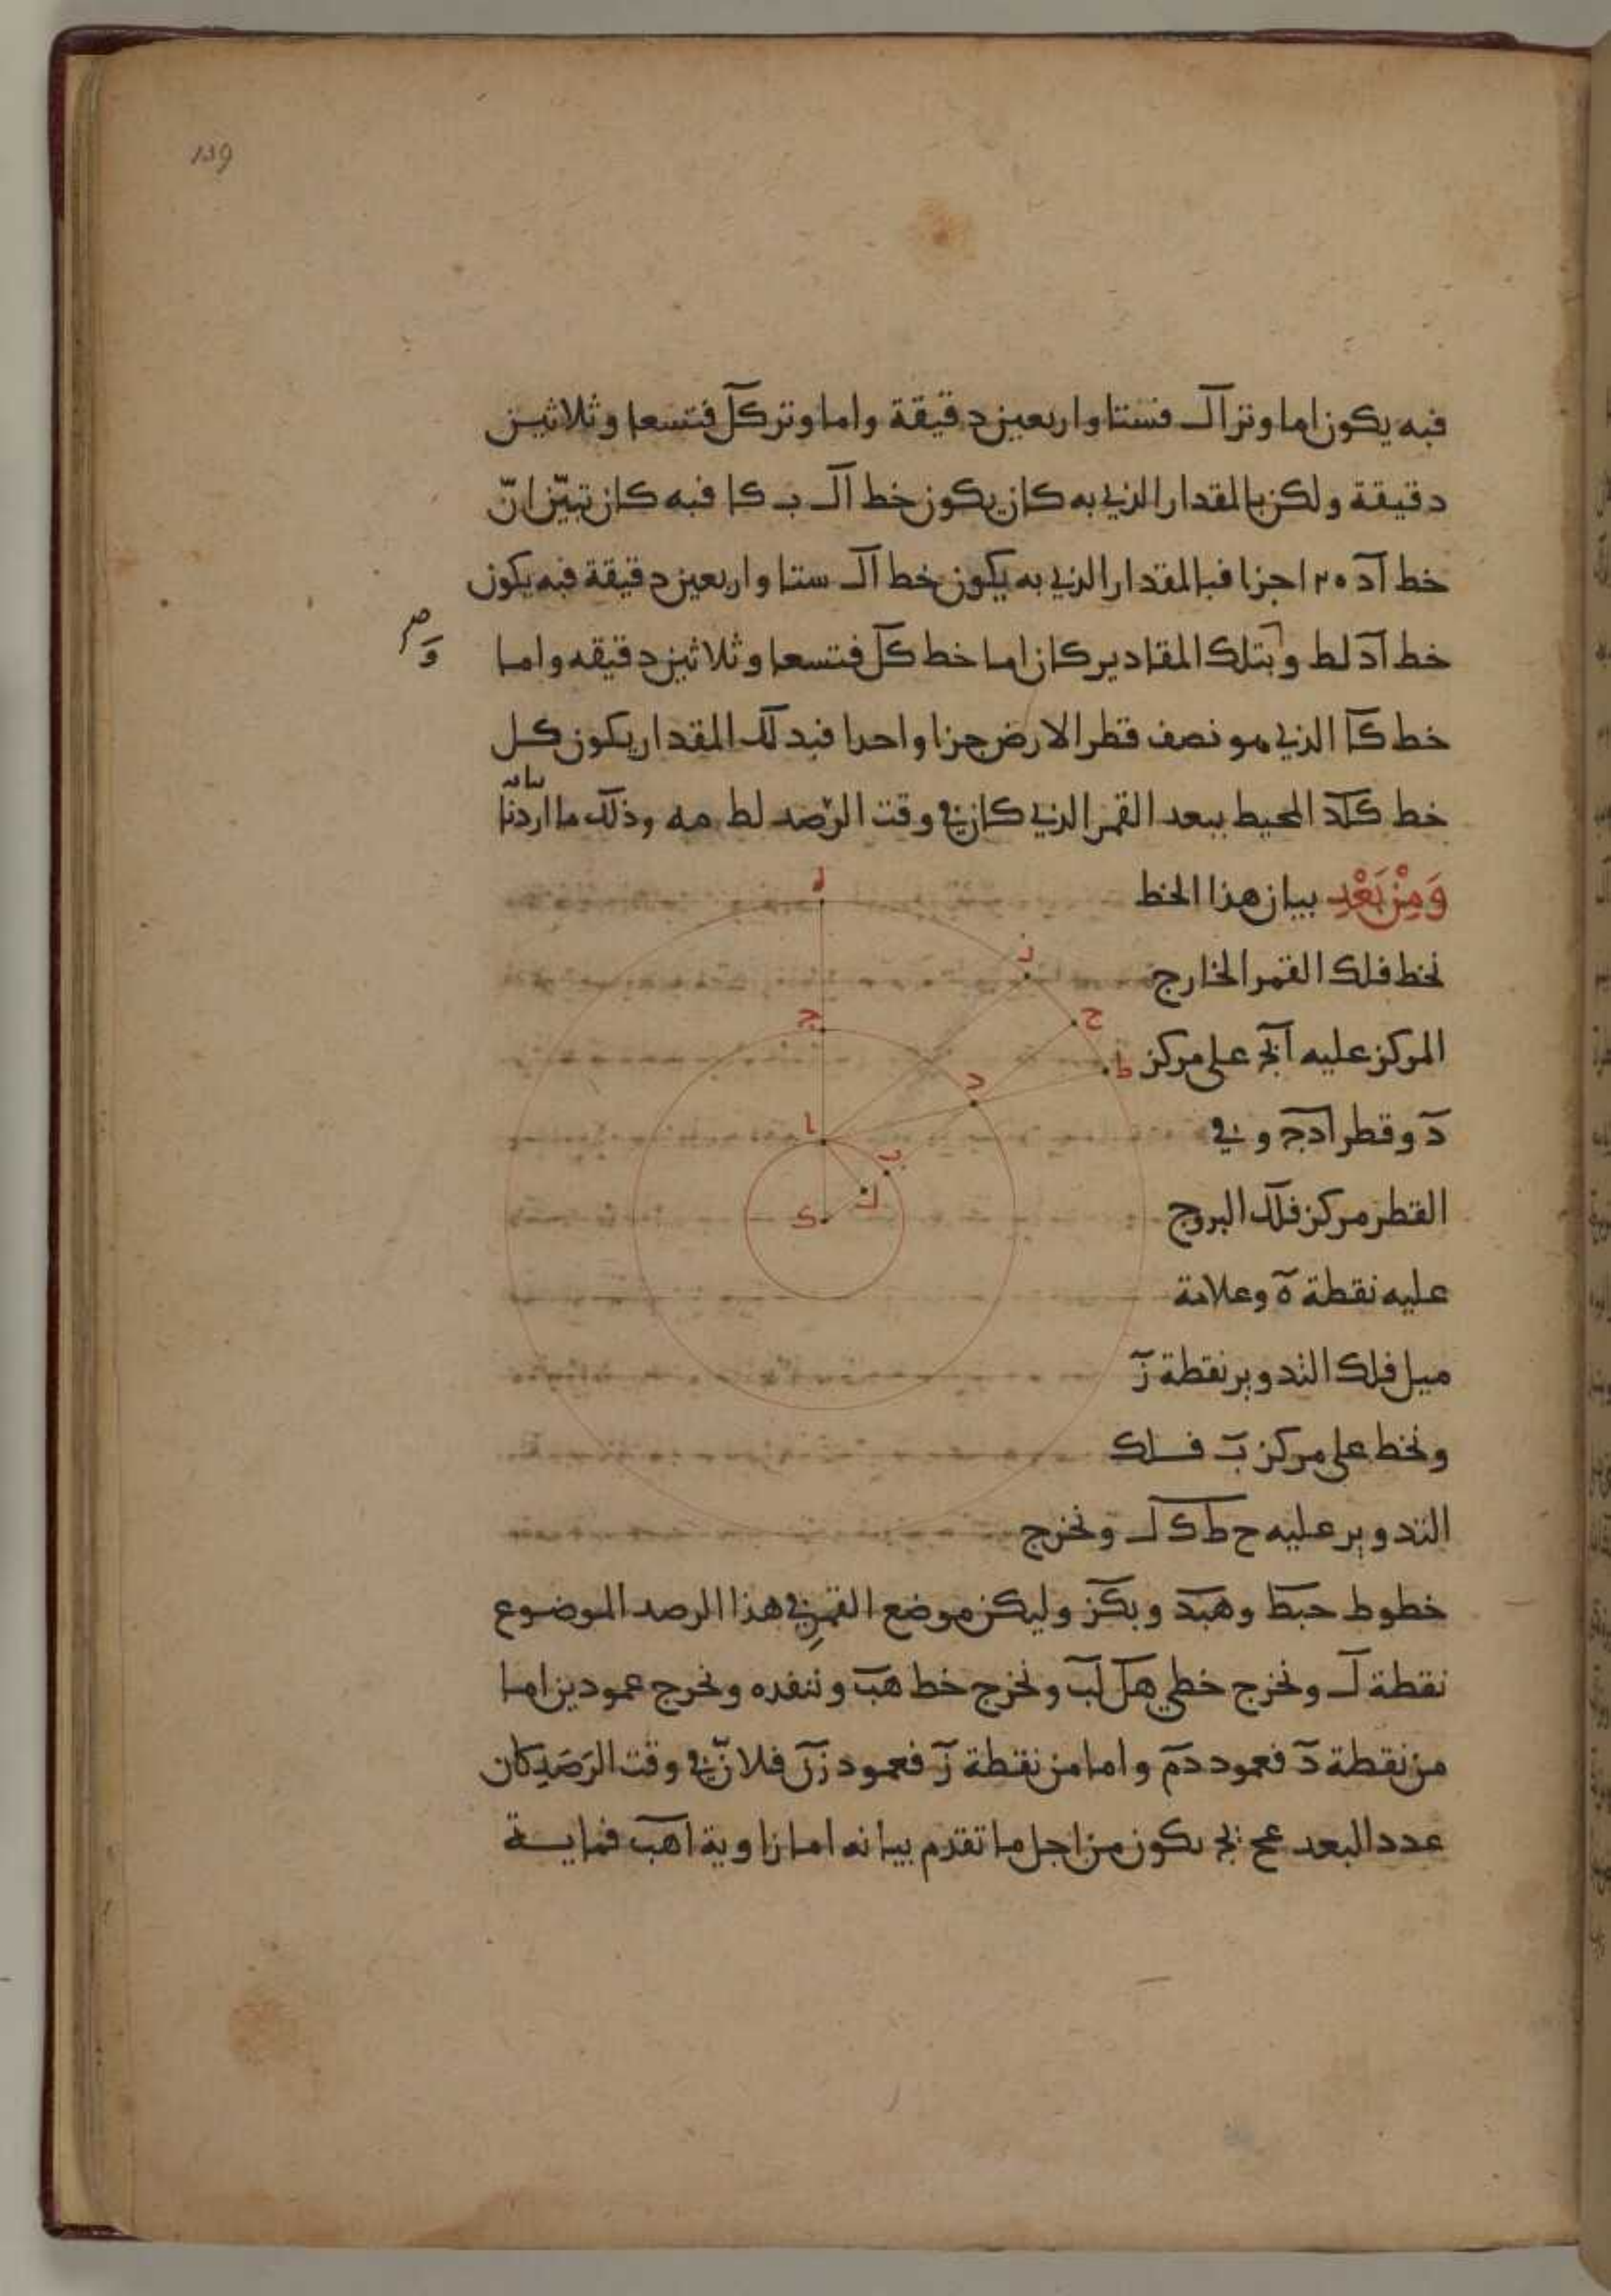 139
فبه يكون اما وتر ال فستا واربعين دقيقة واما وتر كل فتسعا وثلاثين
دقيقة ولكن بالمقدار الذي به كان يكون خط ال ب كا فبه كان تبيّن انّ
خط اد اجزا فبالمقدار الذي به يكون خط ال ستا واربعين دقيقة فبه يكون
خط اد لط و بتلك المقادير كان اما خط كل فتسعا وثلاثين دقيقه واما
خط كا الذي هو نصف قطر الارض جزا واحدا فبذلك المقدار يكون كل
خط كلد المحيط ببعد القمر الذي كان في وقت الرصد لط مه وذلك ما اردنا
بيانه
وَمِنْ بَعْدِ بيان هذا الخط
نخط فلك القمر الخارج
المركز عليه ابج على مركز
د وقطر ادج وفي
القطر مركز فلك البروج
عليه نقطة ه وعلامة
ميل فلك التدوير نقطة ز
ونخط على مركز ب فلك
التدوير عليه ح ط ك ل ونخرج
خطوط حبط وهبد وبكز وليكن موضع القمر في هذا الرصد الموضوع
نقطة ل ونخرج خطي هل لب ونخرج خط هب وننفده ونخرج عمودين اما
من نقطة د فعمود دم واما من نقطة ز فعمود زن فلانّ في وقت الرَصَدِ كان
عدد البعد عح يج يكون من اجل ما تقدم بيانه اما زاوية اهب فمايـة
ز
ح
ج
ط
د
ا
ب
ل
ك